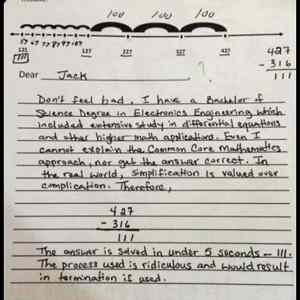 100 100 100
121
127 227 327 427
111
?
427
- 316
111
Dear Jack
Don't feel bad. I have a Bachelor of
Science Degree in Electronics Engineering which
included extensive study in differential equations
and other higher math applications. Even I
cannot explain the Common Core Mathematics
approach, nor get the answer correct. In
the real world, simplification is valued over
complication. Therefore,
427
- 316
111
The answer is solved in under 5 seconds — 111.
The process used is ridiculous and would result
in termination if used.